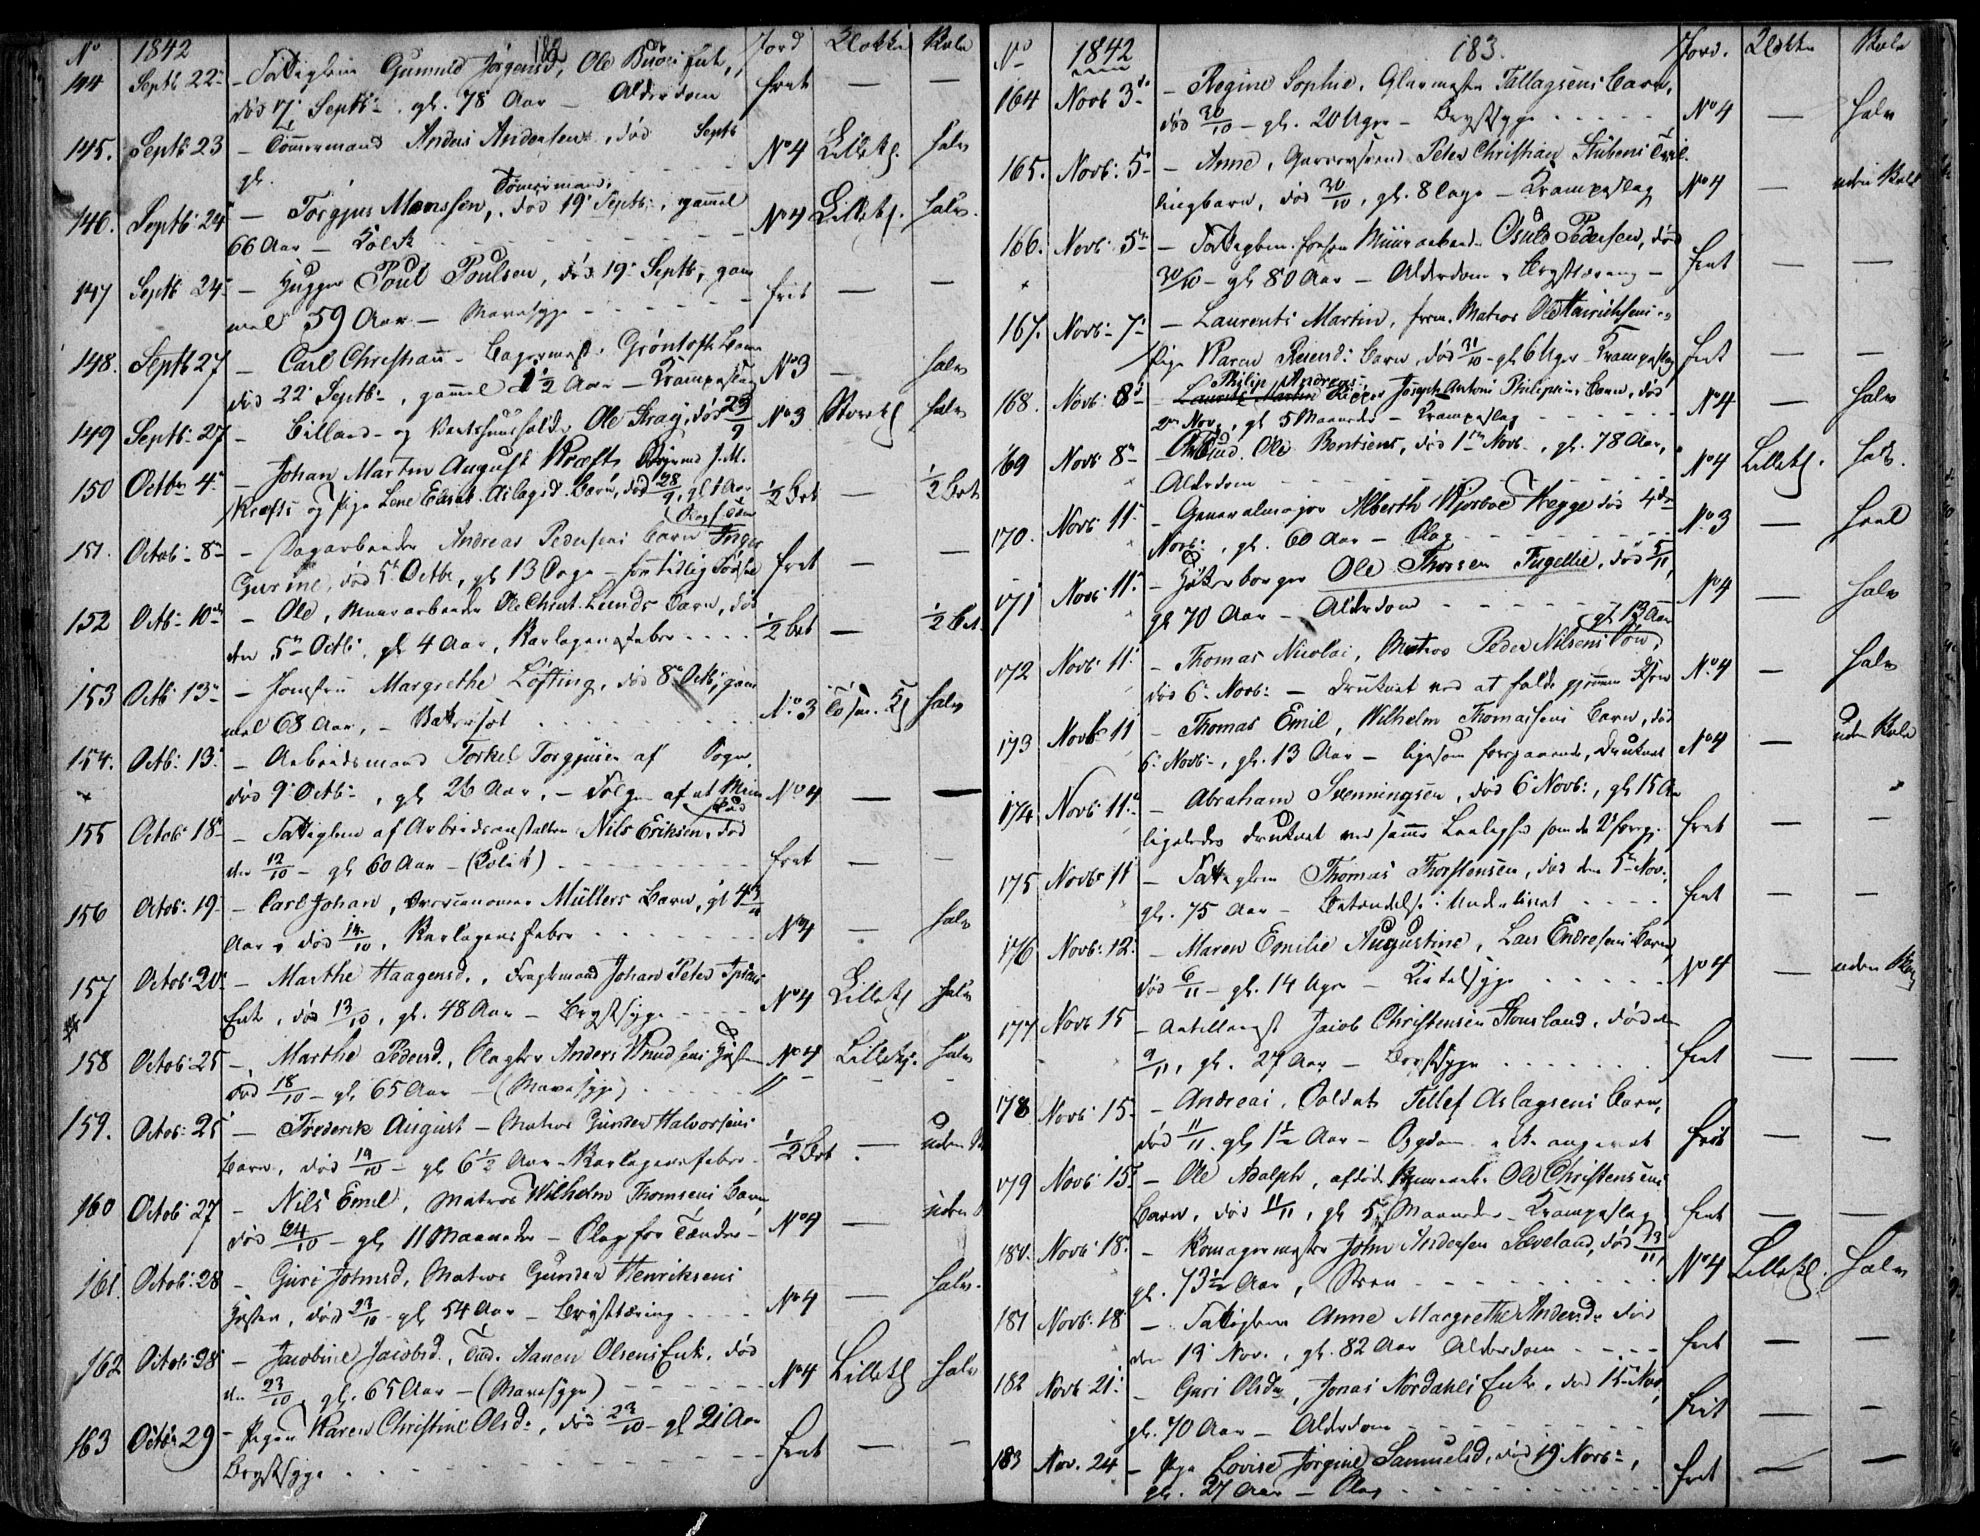 No 1842 182 Jord Klokke Kule
144 Septb 22 - Fattiglem Gunnild Jørgensd, Ole Enke,
død 17 Septb - gl. 78 Aar - Alderdom frit — —
145. Septb 23 - Tømmermand Anders Andersen, død Septb
gl. No 4 Lillekl. halv
146. Septb 24 - Torgjus Monssen, Tømmermand, død 19 Septb, gammel
66 Aar - No 4 Lillekl. halv.
147 Septb 24 - Hugger Poul Poulsen, død 19 Septb, gam
mel 59 Aar - Mavesyge frit — —
148. Septb 27 - Carl Christian - Bagermest. Grøntofts Barn
død 22 Septb -, gammel 1½ Aar - Krampeslag No 3 — halv
149 Septb 27 - Billard- og Vertshuusholder Ole Krag, død 23/9 No 3 Storekl halv
150 Octbr 4 - Johan Martin August Kræfts J. M.
Kræfts og Pige Lene Aslagsd. Barn, død 28/9, gl 1 Aar ½ bet — ½ bet
151. Octob 8 - Dagarbeider Andreas Pedersens Barn Inger
Gurine, død 5 Octbr, gl 13 Dage - fortidlig Fødsel frit — —
152 Octb 10 - Ole, Muurarbeider Ole Christ. Lunds Barn, død
den 5 Octb, gl 4 Aar, Skarlagensfeber ½ bet — ½ bet.
153 Octb 13 - Jomfru Margrethe Löfting, død 8 Octb, gam
mel 68 Aar, - Vattersot No. 3 Kl halv
154. Octb: 13 - Arbeidsmand Torkel Torgjusen af Sogn,
død 9 Octb -, gl 26 Aar, - Følge af et No 4 — —
155 Octob: 18 - Fattiglem af Arbeidsanstalten Nils Eriksen, død
den 12/10 - gl 60 Aar - frit — —
156 Octob: 19 - Carl Johan, Müllers Barn, gl 4
Aar, død 14/10, Skarlagensfeber No 4 — halv
157 Octob 20 - Marthe Haagensd., Fragtmand Johan Peter
Enke, død 13/10, gl. 48 Aar - Brystsyge No 4 Lillekl halv
158 Octob 25 - Marthe Pedersd., Slagter Anders Knudsens Hustru
død 18/10 - gl 65 Aar - (Mavesyge) No 4 Lillekl. halv
159. Octob: 25 - Frederik August - Matros Gunder Halvorsens
Barn, død 19/10 - gl 6½ Aar - Skarlagensfeber ½ bet — uden
160 Octob 27 - Nils Emil, Matros Wilhelm Thomsens Barn,
død 24/10 - gl 11 Maaneder - Slag for Tænder No 4 — uden
161 Octob: 28 - Guri Johnsd, Matros Gunder Henriksens
Hustru, død 23/10 gl 54 Aar - Brysttæring No 4 — halv.
162 Octob: 28 - Jacobine Jacobsd., Aanen Olsens Enke, død
den 23/10, gl. 65 Aar - (Mavesyge) No 4 Lillekl halv
163 Octb 29 - Pigen Karen Christine Olsd., død 23/10 - gl 21 Aar
Brystsyge frit — —
No 1842 183. Jord. Klokke Kule
164 Novb 3 - Regine Sophie, Glarmester Tallagsens Barn,
død 30/10 - gl. 20 Uger - Brystsyge No 4 — halv
165. Novb: 5 - Anne, Peter Christian Stübens Tvil
lingbarn, død 30/10, gl. 8 Dage - Krampeslag No 4 — uden Kule
166. Novb: 5 - Fattiglem forhen Muurarbeid. Osuld Pedersen, død
30/10 - gl 80 Aar - Alderdom frit — —
167. Novb - 7 - Laurents Martin, frem. Matros Ole Hinrichsens og
Pige Karen Reiersd. Barn, død 31/10 - gl 6 Uger - Krampeslag frit — —
168. Novb: 8 - Laurits Martin Philip Andreas Joseph Antoni Philippi Barn, død
2 Nov, gl 5 Maaneder - Krampeslag No 4 — halv
169 Novb 8 - Ole Bentsens, død 1 Novb., gl. 78 Aar,
Alderdom No 4 Lillekl. halv.
170. Novb 11 - Generalmajor Alberth Hegge død 4de
Novb, gl. 60 Aar - Slag No. 3 — heel
171 Novb 11 - Høkerborger Ole Thorsen Fugellie, død 5/11,
gl 70 Aar - Alderdom No 4 — halv
172 Novb 11 - Thomas Nicolai, Matros Peder Nilsens Søn, gl 13 Aar
død 6 Novb - druknet ved at falde gjennem Isen No. 4 — halv
173 Novb 11 - Thomas Emil, Wilhelm Thomassens Barn, død
6 Novb -, gl. 13 Aar - ligesom foregaaende, druknet No 4 — uden Kule
174 Novb: 11 - Abraham Svenningsen, død 6 Novb, gl 15 Aar
ligeledes druknet ved samme Leilighed som de 2 foreg. frit — —
175 Novb 11 - Fattiglem Thomas Thorstensen, død den 5 Nov.
gl. 75 Aar - Betændelse i Underlivet frit — —
176 Novb: 12 - Maren Emilie Augustine, Lars Endresens Barn,
død 6/11 - gl. 14 Uger - No 4 — uden
177 Novb 15 - Artillerist Jacob Christensen Housland, død den
9/11, gl. 27 Aar - Brystsyge frit — —
178 Novb 15 - Andreas, Soldat Tellef Aslagsens Barn,
død 11/11 gl 1½ Aar - Sygdom ikke angivet frit — —
179 Novb 15 - Ole Adolph, afdøde Ole Christensens
Barn, død 11/11, gl 5 Maaneder - Krampeslag frit — —
180. Novb: 18. - John Andersen Søveland, død 13/11,
gl. 73½ Aar, No 4 Lillekl. halv
181 Novb: 18 - Fattiglem Anne Margrethe Andersd. død
den 13 Nov., gl. 82 Aar Alderdom frit — —
182 Novb 21 - Guri Olsdr, Jonas Nordahls Enke, død 15 Nov,
gl. 70 Aar - Alderdom frit — —
183 Nov. 24 - Pige Lovise Jørgine Samuelsd, død 19 Novb -,
gl. 27 Aar - Slag frit — —